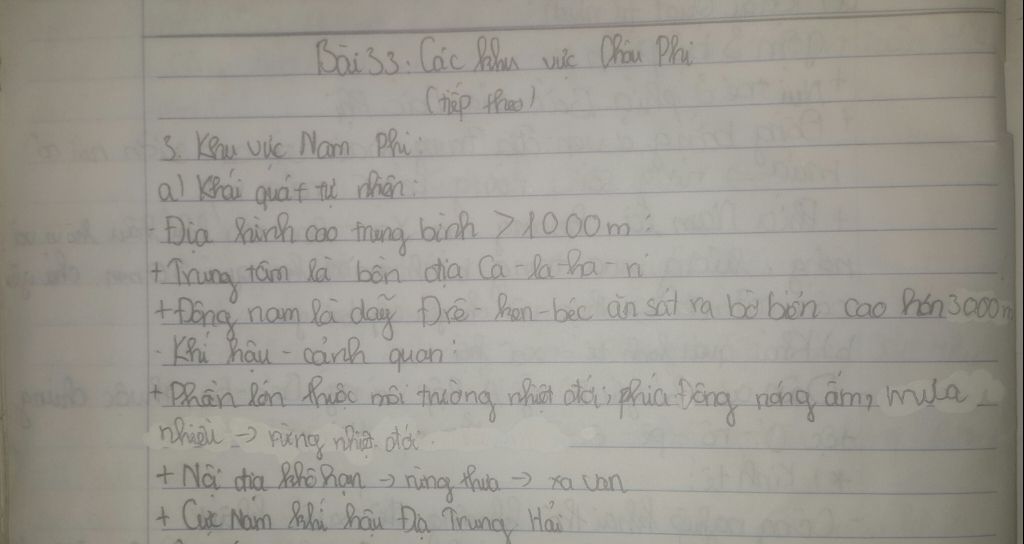 Bài 33: Các khu vực Châu Phi
(tiếp theo)
3. Khu vực Nam Phi
a) Khái quát tự nhiên:
- Địa hình cao trung bình > 1000m:
+ Trung tâm là bồn địa Ca-la-ha-ri
+ Đông nam là dãy Đrê-ken-béc ăn sát ra bờ biển cao hơn 3000m
- Khí hậu - cảnh quan:
+ Phần lớn thuộc môi trường nhiệt đới, phía Đông nóng ẩm, mưa
nhiều → rừng nhiệt đới.
+ Nội địa khô hạn → rừng thưa → xa van
+ Cực Nam khí hậu Địa Trung Hải